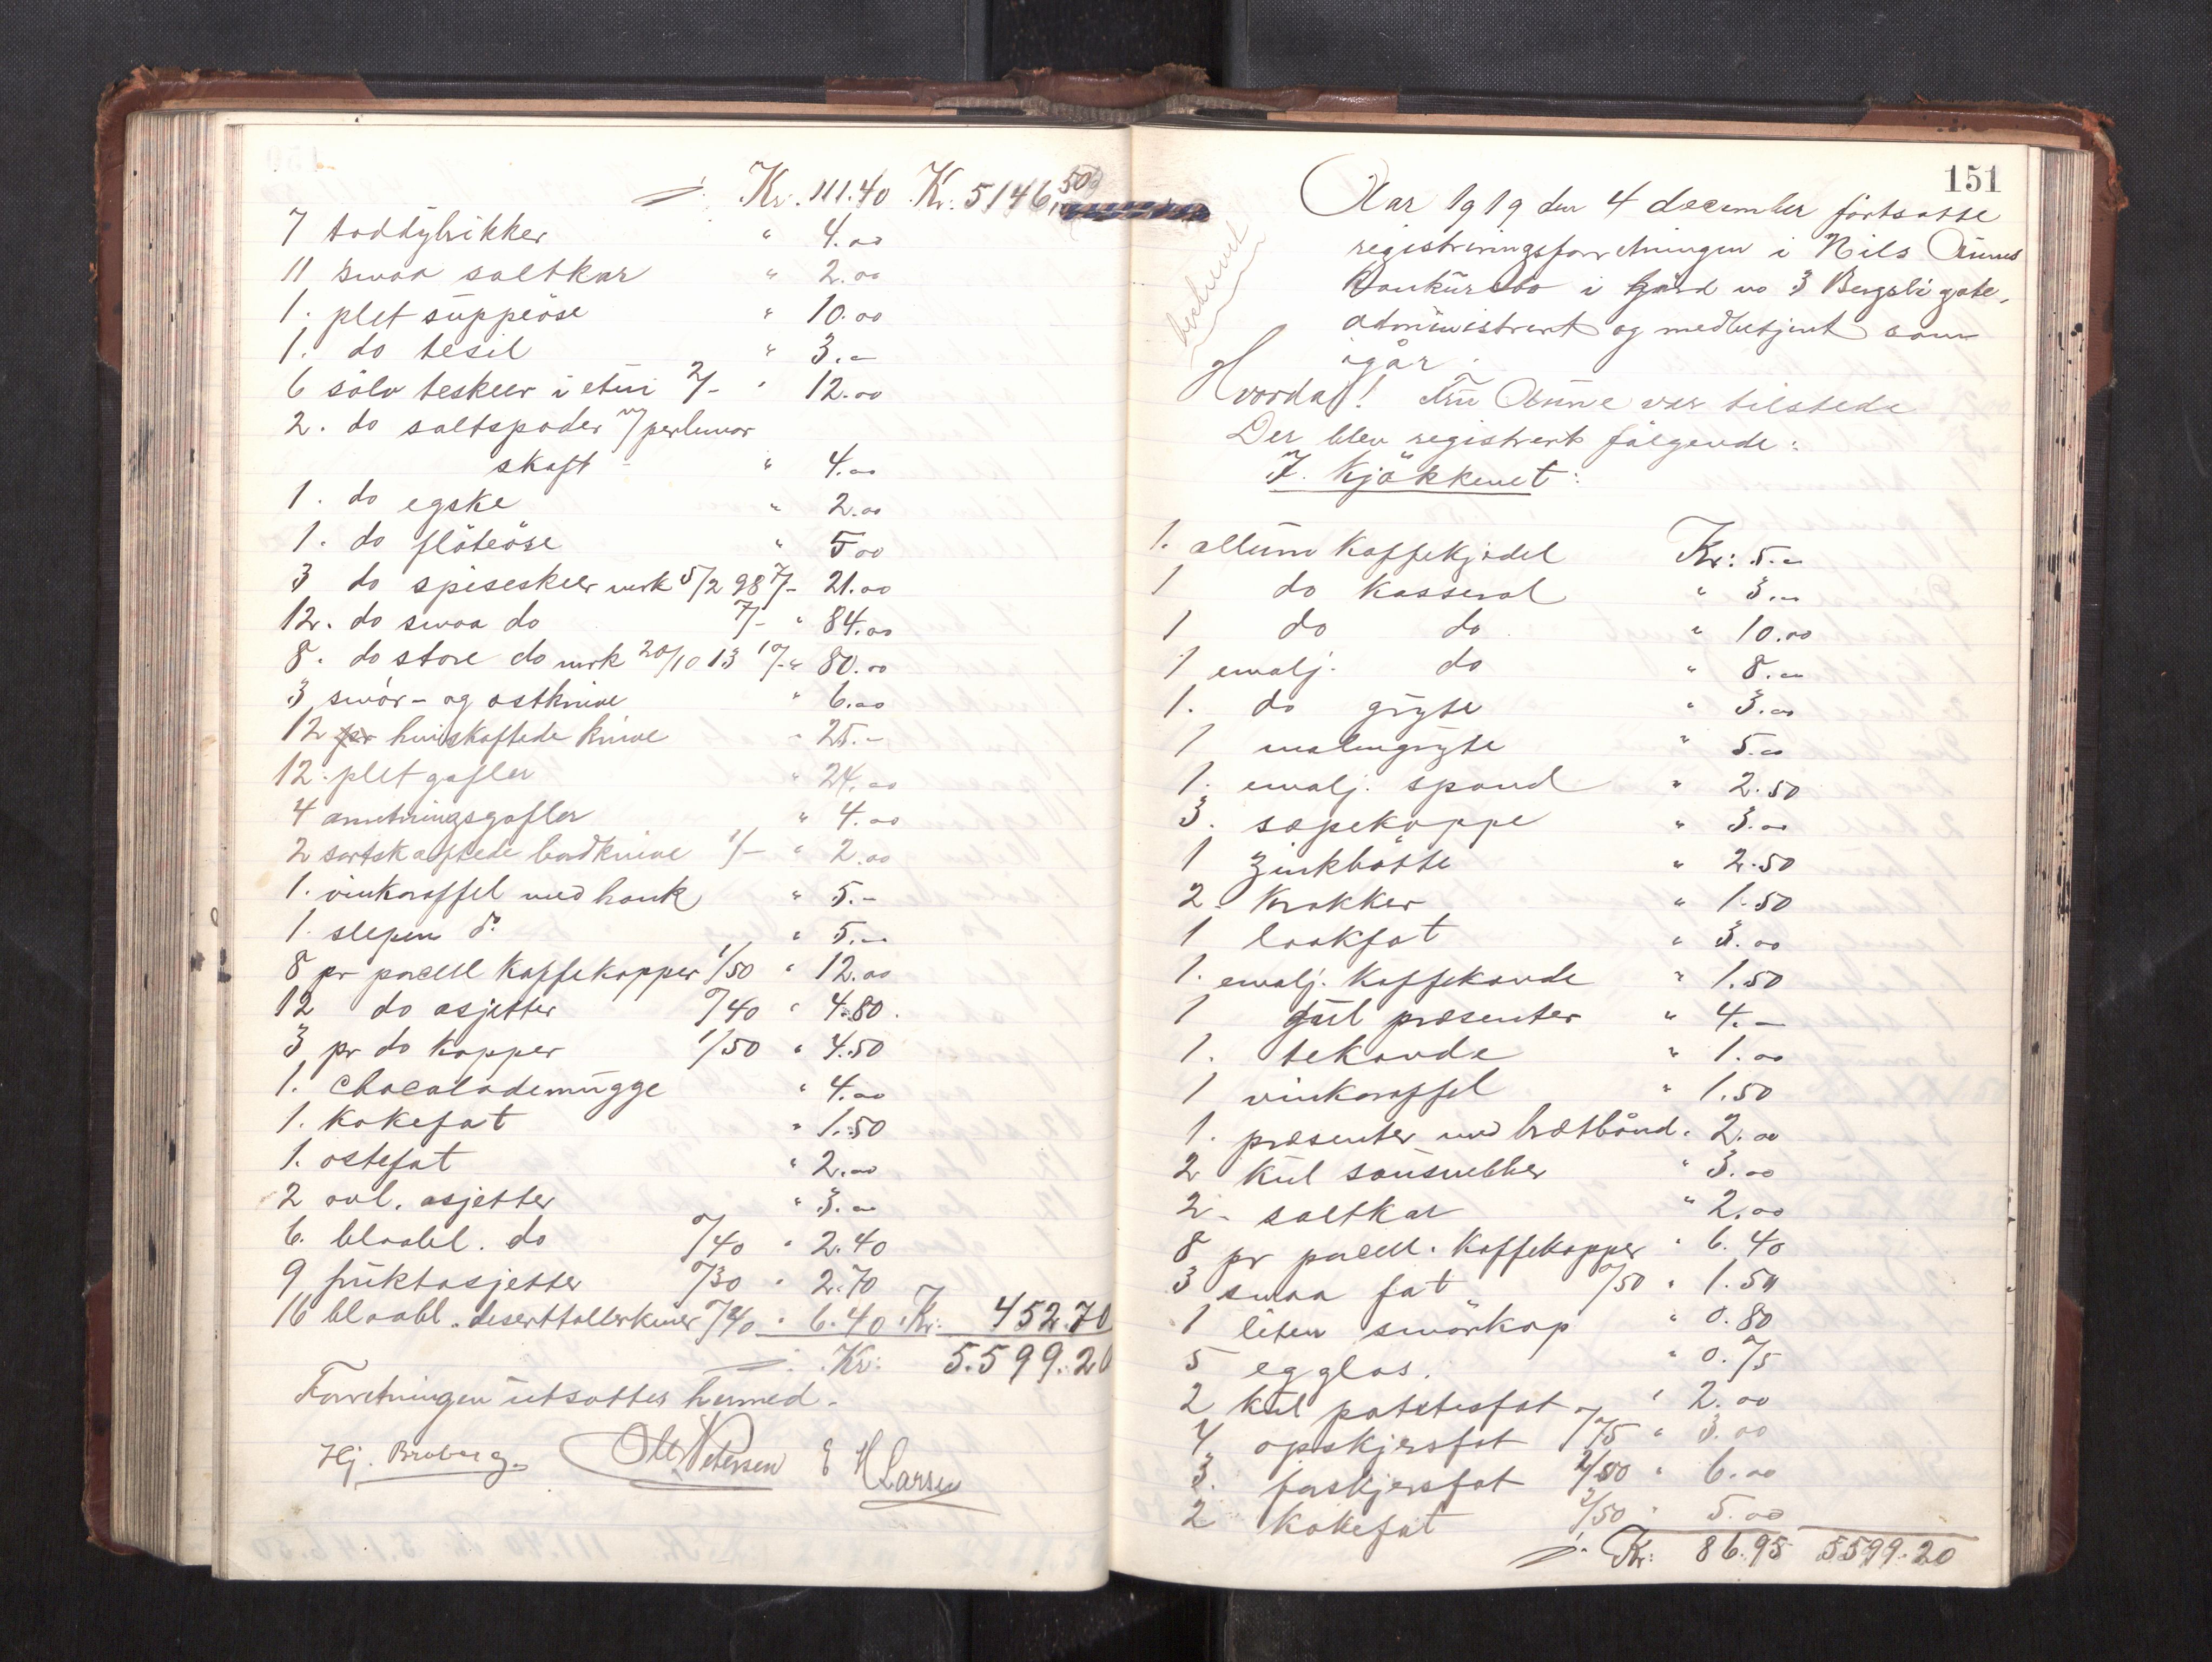 ./. Kr. 111.40 Kr. 5146,50
7 toddybrikker " 4.00
11 smaa saltkar " 2.00
1. plet suppeöse " 10.00
1. do tesil " 3.-
6 sölv teskeer i etui 2/- " 12.00
2. do saltspader m/perlemor
skaft - " 4.00
1. do egske " 2.00
1. do flöteöse " 5 00
3 do spiseskeer mrk 5/2 98 7/- 21.00
12. do smaa do 7/- " 84.00
8. do store do mrk 20/10 13 10/- " 80.00
3 smör- og ostknive " 6.00
12 hvitskaftede knive " 25.-
12. plet gafler " 24.00
4 anretningsgafler " 4.00
2 sortskaftede bordknive 1/- " 2.00
1. vinkaraffel med hank " 5.-
1. slepen do " 5.-
8 pr porcell kaffekopper 1/50 " 12.00
12 do asjetter 0/40 " 4.80.
3 pr do kopper 1/50 " 4.50
1. chocalademugge " 4.00
1. kakefat " 1.50
1. ostefat " 2.00
2 ovl. asjetter " 3.00
6. blaabl. do 0/40 " 2.40
9 fruktasjetter 0/30 " 2.70
16 blaabl. deserttallerkener 0/40 " 6.40 Kr: 452.70
./. Kr: 5.599.20
Forretningen utsattes hermed.
Hj. Broberg. Ott. Petersen E H Larsen
151
Aar 1919 den 4 december fortsatte
registreringsforretningen i Nils Aunes
konkursbo i gård no 3 Bergsli gate,
administrert og medbetjent som
igår.
beskrevet
Hvorda! Fru Aune var tilstede
Der blev registrert fölgende:
I. Kjökkenet:
1. allum kaffekjedel Kr: 5.-
1 do kasserol " 3.-
1 do do " 10.00
1 emalj. do " 8.-
1. do gryte " 3.00
1 malmgryte " 5.00
1. emalj. spand " 2.50
3. sæpekoppe " 3.00
1 zinkbötte " 2.50
2. krakker " 1.50
1 laakfat " 3.00
1. emalj. kaffekande " 1.50
1 gul præsenter " 4.-
1. tekande " 1.00
1 vinkaraffel " 1.50
1. præsenter med brætbånd " 2.00
2 kul sausnebber " 3.00
2. saltkar " 2.00
8 pr porcell. kaffekopper " 6.40
3 smaa fat 0/50 " 1.50
1 liten smörkop " 0.80
5 egglas. " 0.75
2 kul potetesfat " 2.00
4 opskjersfat 0/75 " 3.00
3. farskjersfat 2/00 " 6.00
2 kakefat 2/50 " 5.00
./. Kr: 86.95 5599.20